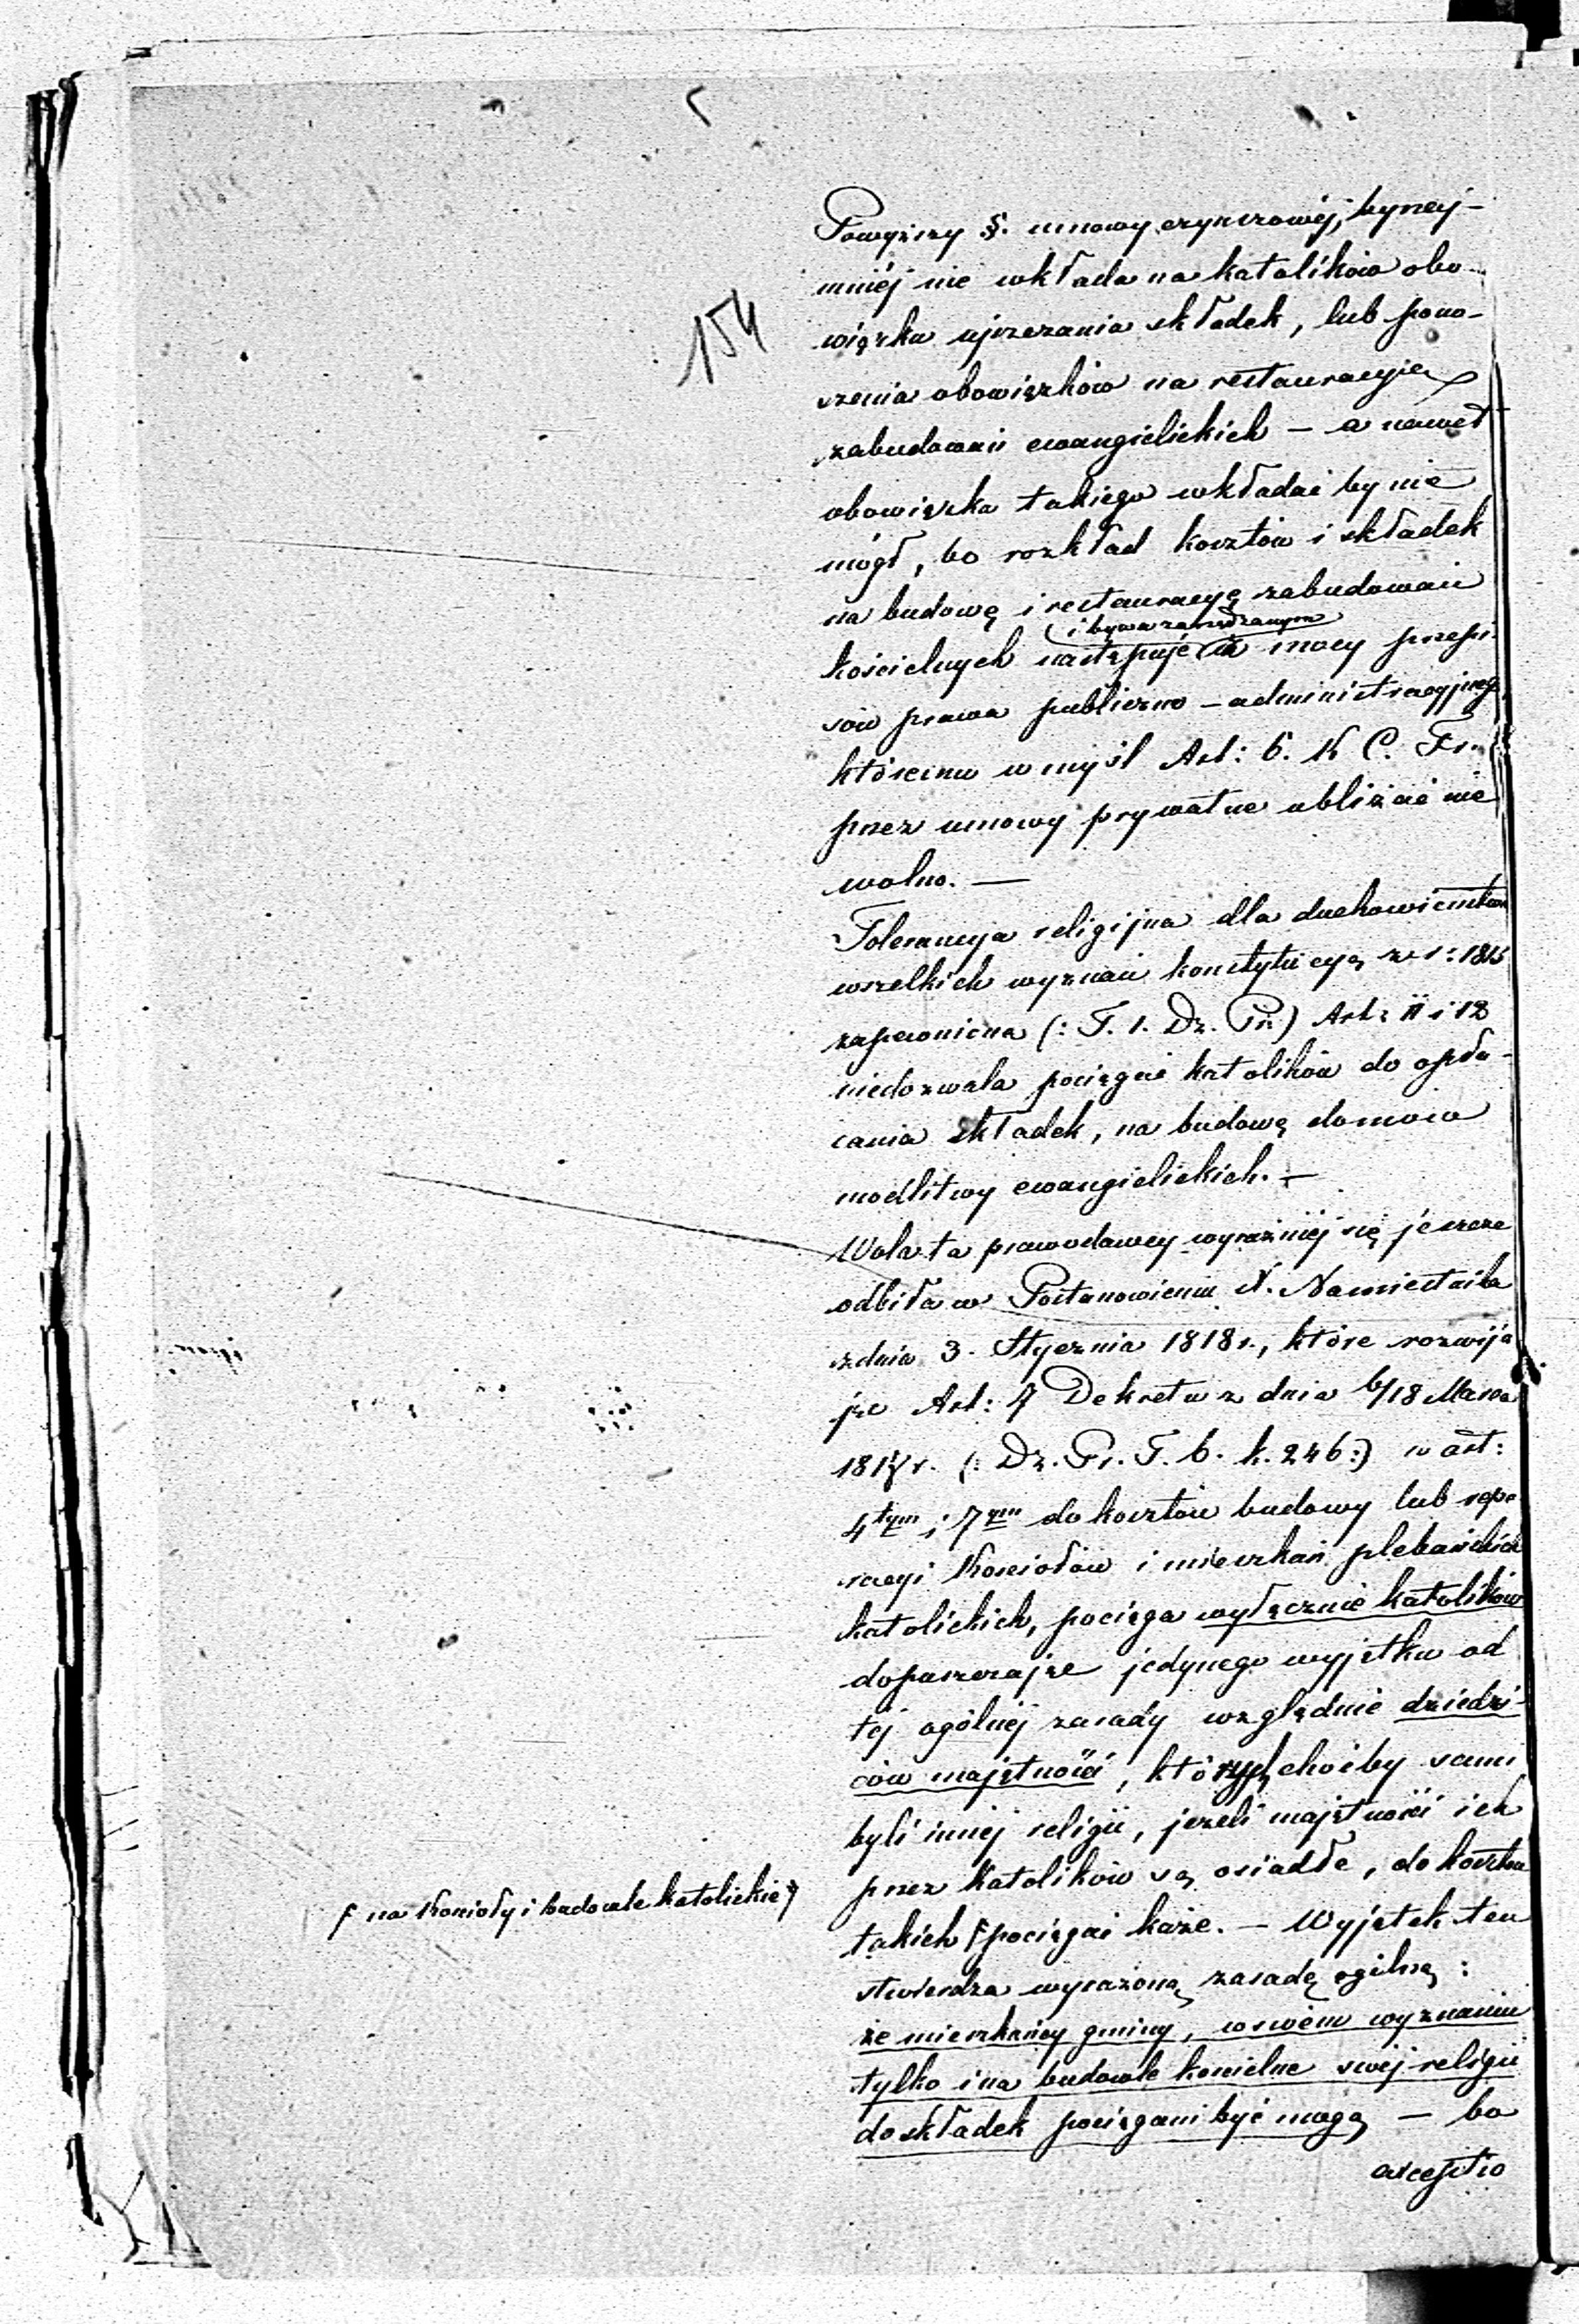 154
Powyższy §. umowy czynszowéj, bynaj-
mniéj nie wkłada na katolików obo-
wiązku uiszczania składek, lub pono-
szenia obowiązków na restauracyje
zabudowań ewangielickich – a nawet
obowiązku takiego wkładać by nie
mógł, bo rozkład kosztów i składek
na budowę i restauracyę zabudowań
i bywa zarządzanym
kościelnych następuje z mocy przepi-
sów prawa publiczno-administracyjnego
któremu w myśl Art: 6. K C. Fr.
przez umowy prywatne ubliżać nie
wolno. —
Tolerancya religijna dla duchowieństwa
wszelkich wyznań konstytucyą z r: 1815
zapewniona (: T. 1. Dz. Pr.) Art: 11 i 12
niedozwala pociągać katolików do opła-
cania składek, na budowę domów
modlitwy ewangielickich. —
Wola ta prawodawcy wyraźniéj się jeszcze
odbiła w Postanowieniu X. Namiestnika
z dnia 3. Stycznia 1818 r., które rozwija
jąc Art: 7 Dekretu z dnia 6/18 Marca
1817 r. (: Dz. Pr. T. 6. k. 246:) w art:
4tym i 7ym do kosztów budowy lub repe-
racyi Kościołów i mieszkań plebańskich
katolickich, pociąga wyłącznie katolików
dopuszczając jedynego wyjątku od
téj ogólnéj zasady względnie dziedzi-
ców majętności, których choćby sami
byli innéj religii, jeżeli majętności ich
przez Katolików są osiadłe, do kosztów
takich ƒ pociągać każe. — Wyjątek ten
ƒ na Kościoły i budowle katolickie
stwierdza wyrażoną zasadę ogólną:
że mieszkańcy gminy, w swém wyznaniu
tylko i na budowle kościelne swéj religii
do składek pociągani być mogą — bo
exceptio